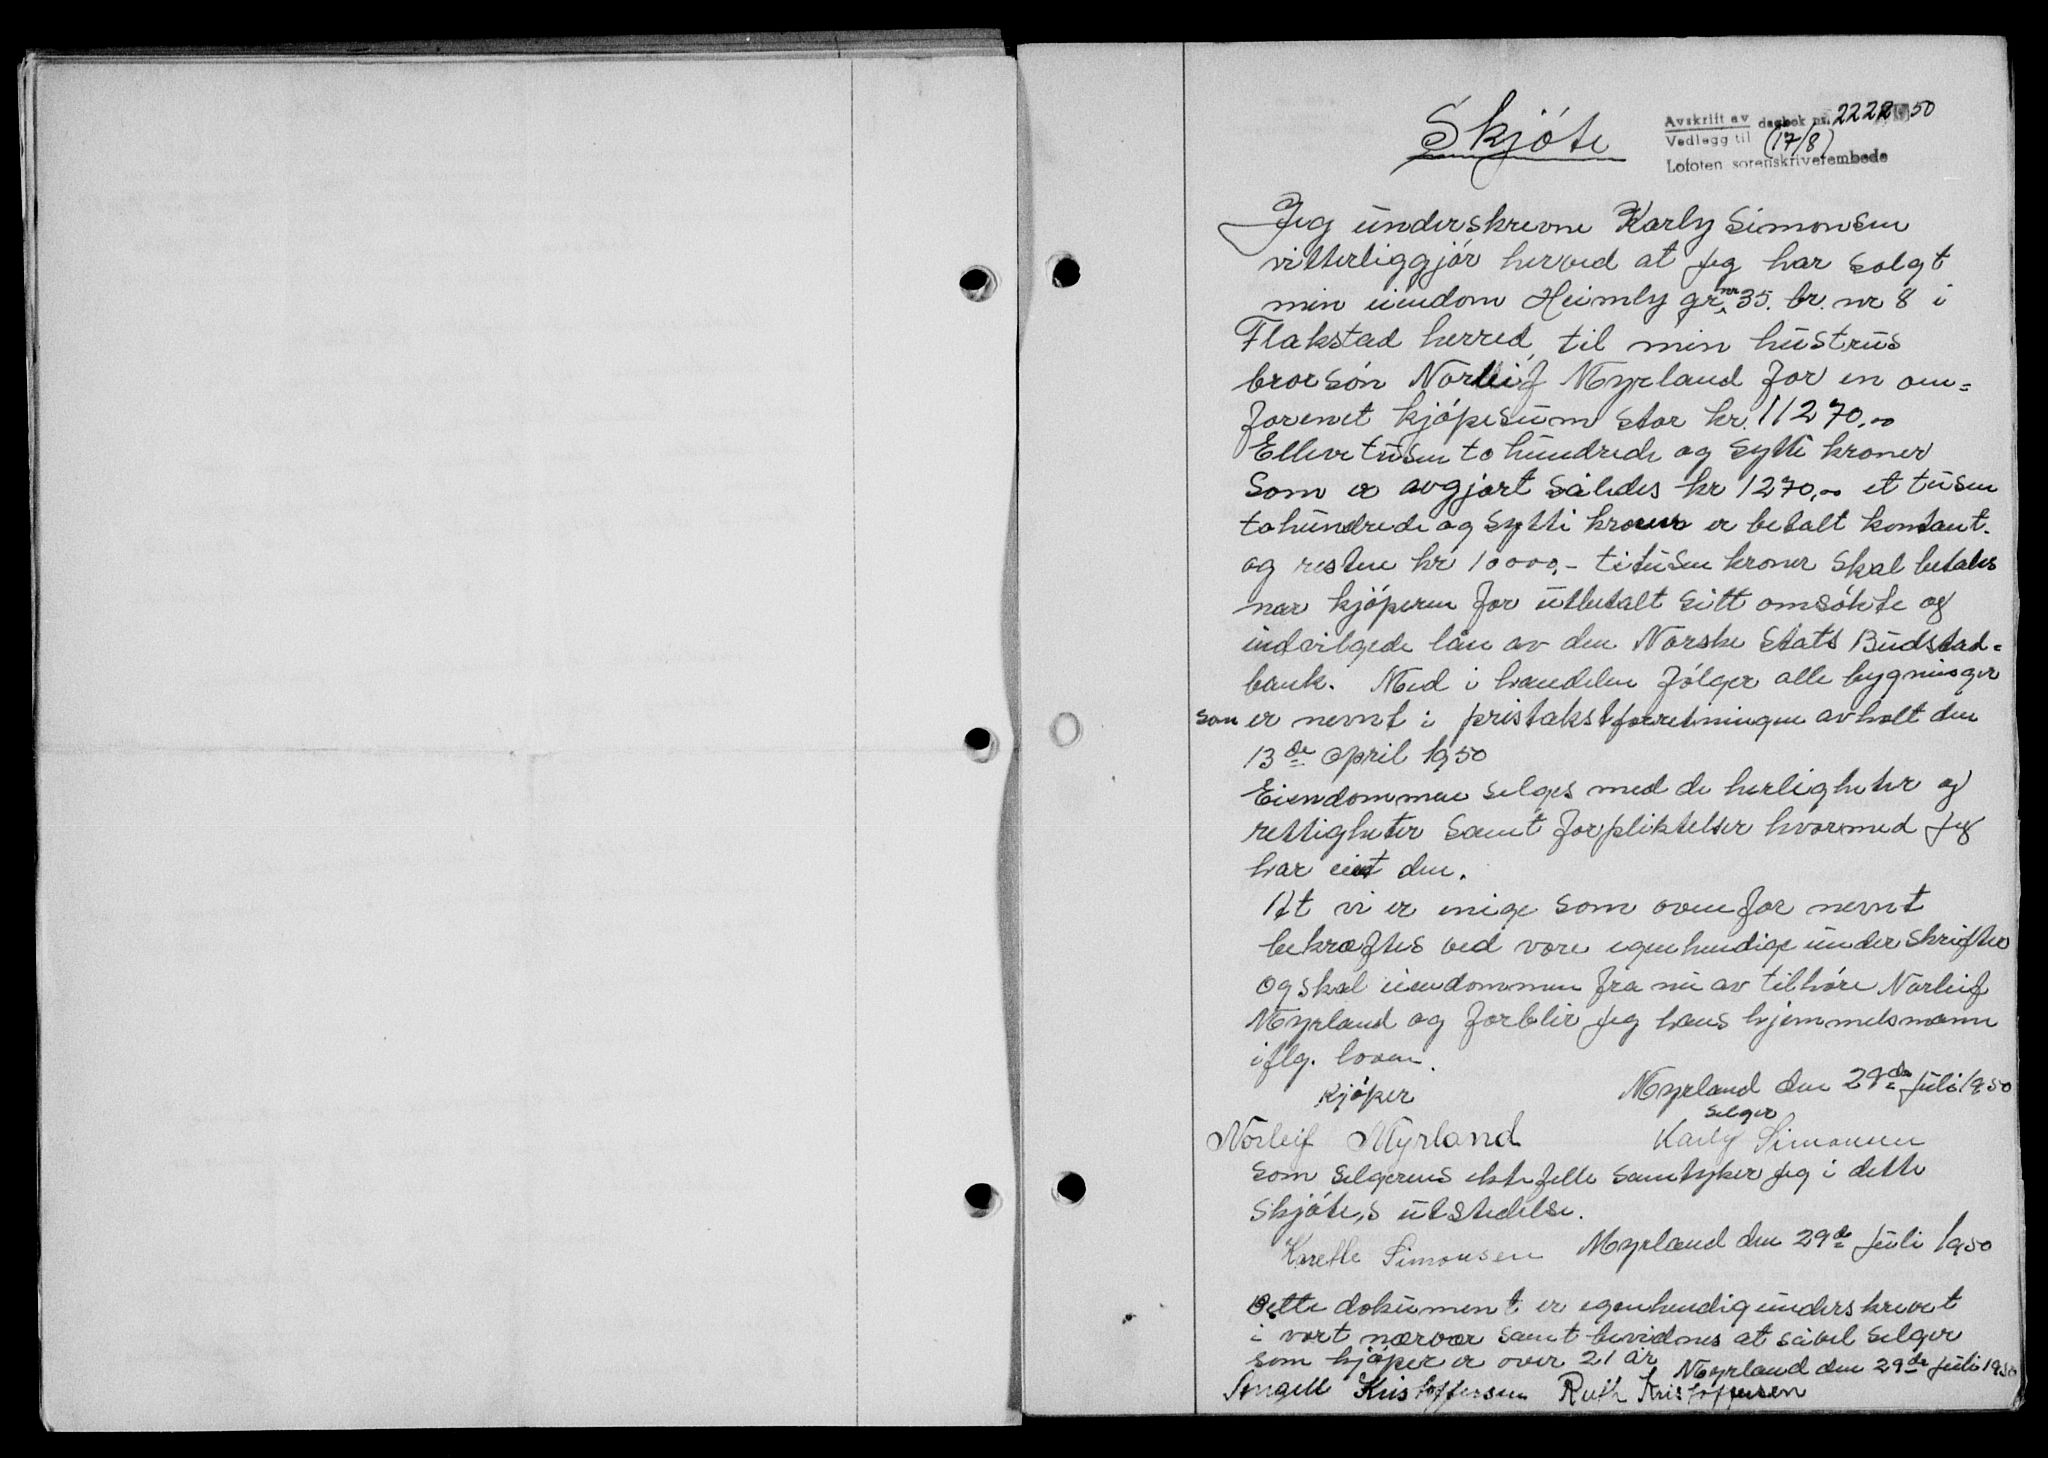 Skjóte
Avskrift av dagbok nr. 2222 1950
Vedlegg til (17/8)
Lofoten sorenskriverembede
Jeg underskrevne Karly Simonsen
vitterliggjør herved at Jeg har solgt
min eiendom Heimly gr. nr 35. br. nr 8 i
Flakstad herred, til min hustrus
brorsón Norleif Myrland for en om=
forenet kjópesum stor kr. 11270,00
Elleve tusen to hundrede og sytti kroner
Som er avgjort Således kr 1270,00 et tusen
tohundrede og sytti kroner er betalt kontant.
og resten kr 10000,- titusen kroner skal betales
nar kjóperen for utbetalt sitt omsókte og
indvilgede lån av den Norske Stats Budstad=
bank. Med i handelen fólger alle bygninger
som er nevnt i pristakstforretningen avholt den
13de April 1950
Eiendommen selges med de herligheter og
rettigheter Samt forpliktelser hvormed Jeg
har eiet den.
At vi er enige som ovenfor nevnt
bekræftes ved vore egenhendige underskrifter
og skal eiendommen fra nu av tilhóre Norleif
Myrland og forblir Jeg hans hjemmelsmann
iflg. loven.
Myrland den 29de Juli 1950
Kjóper
Selger
Norleif Myrland Karly Simonsen
Som Selgerens ektefelle Samtyker Jeg i dette
Skjóte,s utstedelse.
Karethe Simonsen Myrland den 29de Juli 1950
Dette dokument er egenhendig underskrevet
i vort nærvær samt bevidnes at såvel Selger
som kjóper er over 21 år
Myrland den 29de Juli 1950
Angell Kristoffersen Ruth Kristoffersen